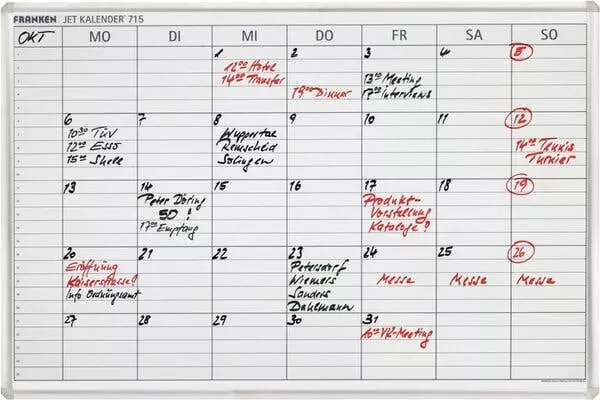 FRANKEN JET KALENDER® 715
OKT MO DI MI DO FR SA SO
1 2 3 4 5
12⁰⁰ Hotel
14⁰⁰ Transfer
19⁰⁰ Dinner
13⁰⁰ Meeting
17⁰⁰ Interviews
6 7 8 9 10 11 12
10³⁰ TÜV
12⁰⁰ Esso
15⁰⁰ Shell
Wuppertal
Remscheid
Solingen
14⁰⁰ Tennis
Turnier
13 14 15 16 17 18 19
Peter Döring
50 !
17⁰⁰ Empfang
Produkt-
Vorstellung
Kataloge ?
20 21 22 23 24 25 26
Eröffnung
Kaiserstrasse!
Info Ordnungsamt
Petersdorf
Wiemers
Sanders
Dahlemann
Messe Messe Messe
27 28 29 30 31
16⁰⁰ VK-Meeting